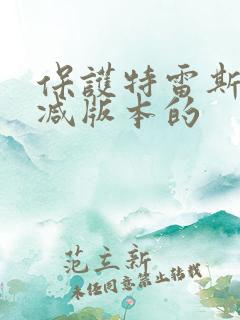 保護特雷斯
减版本的
范立新
未经同意禁止转载